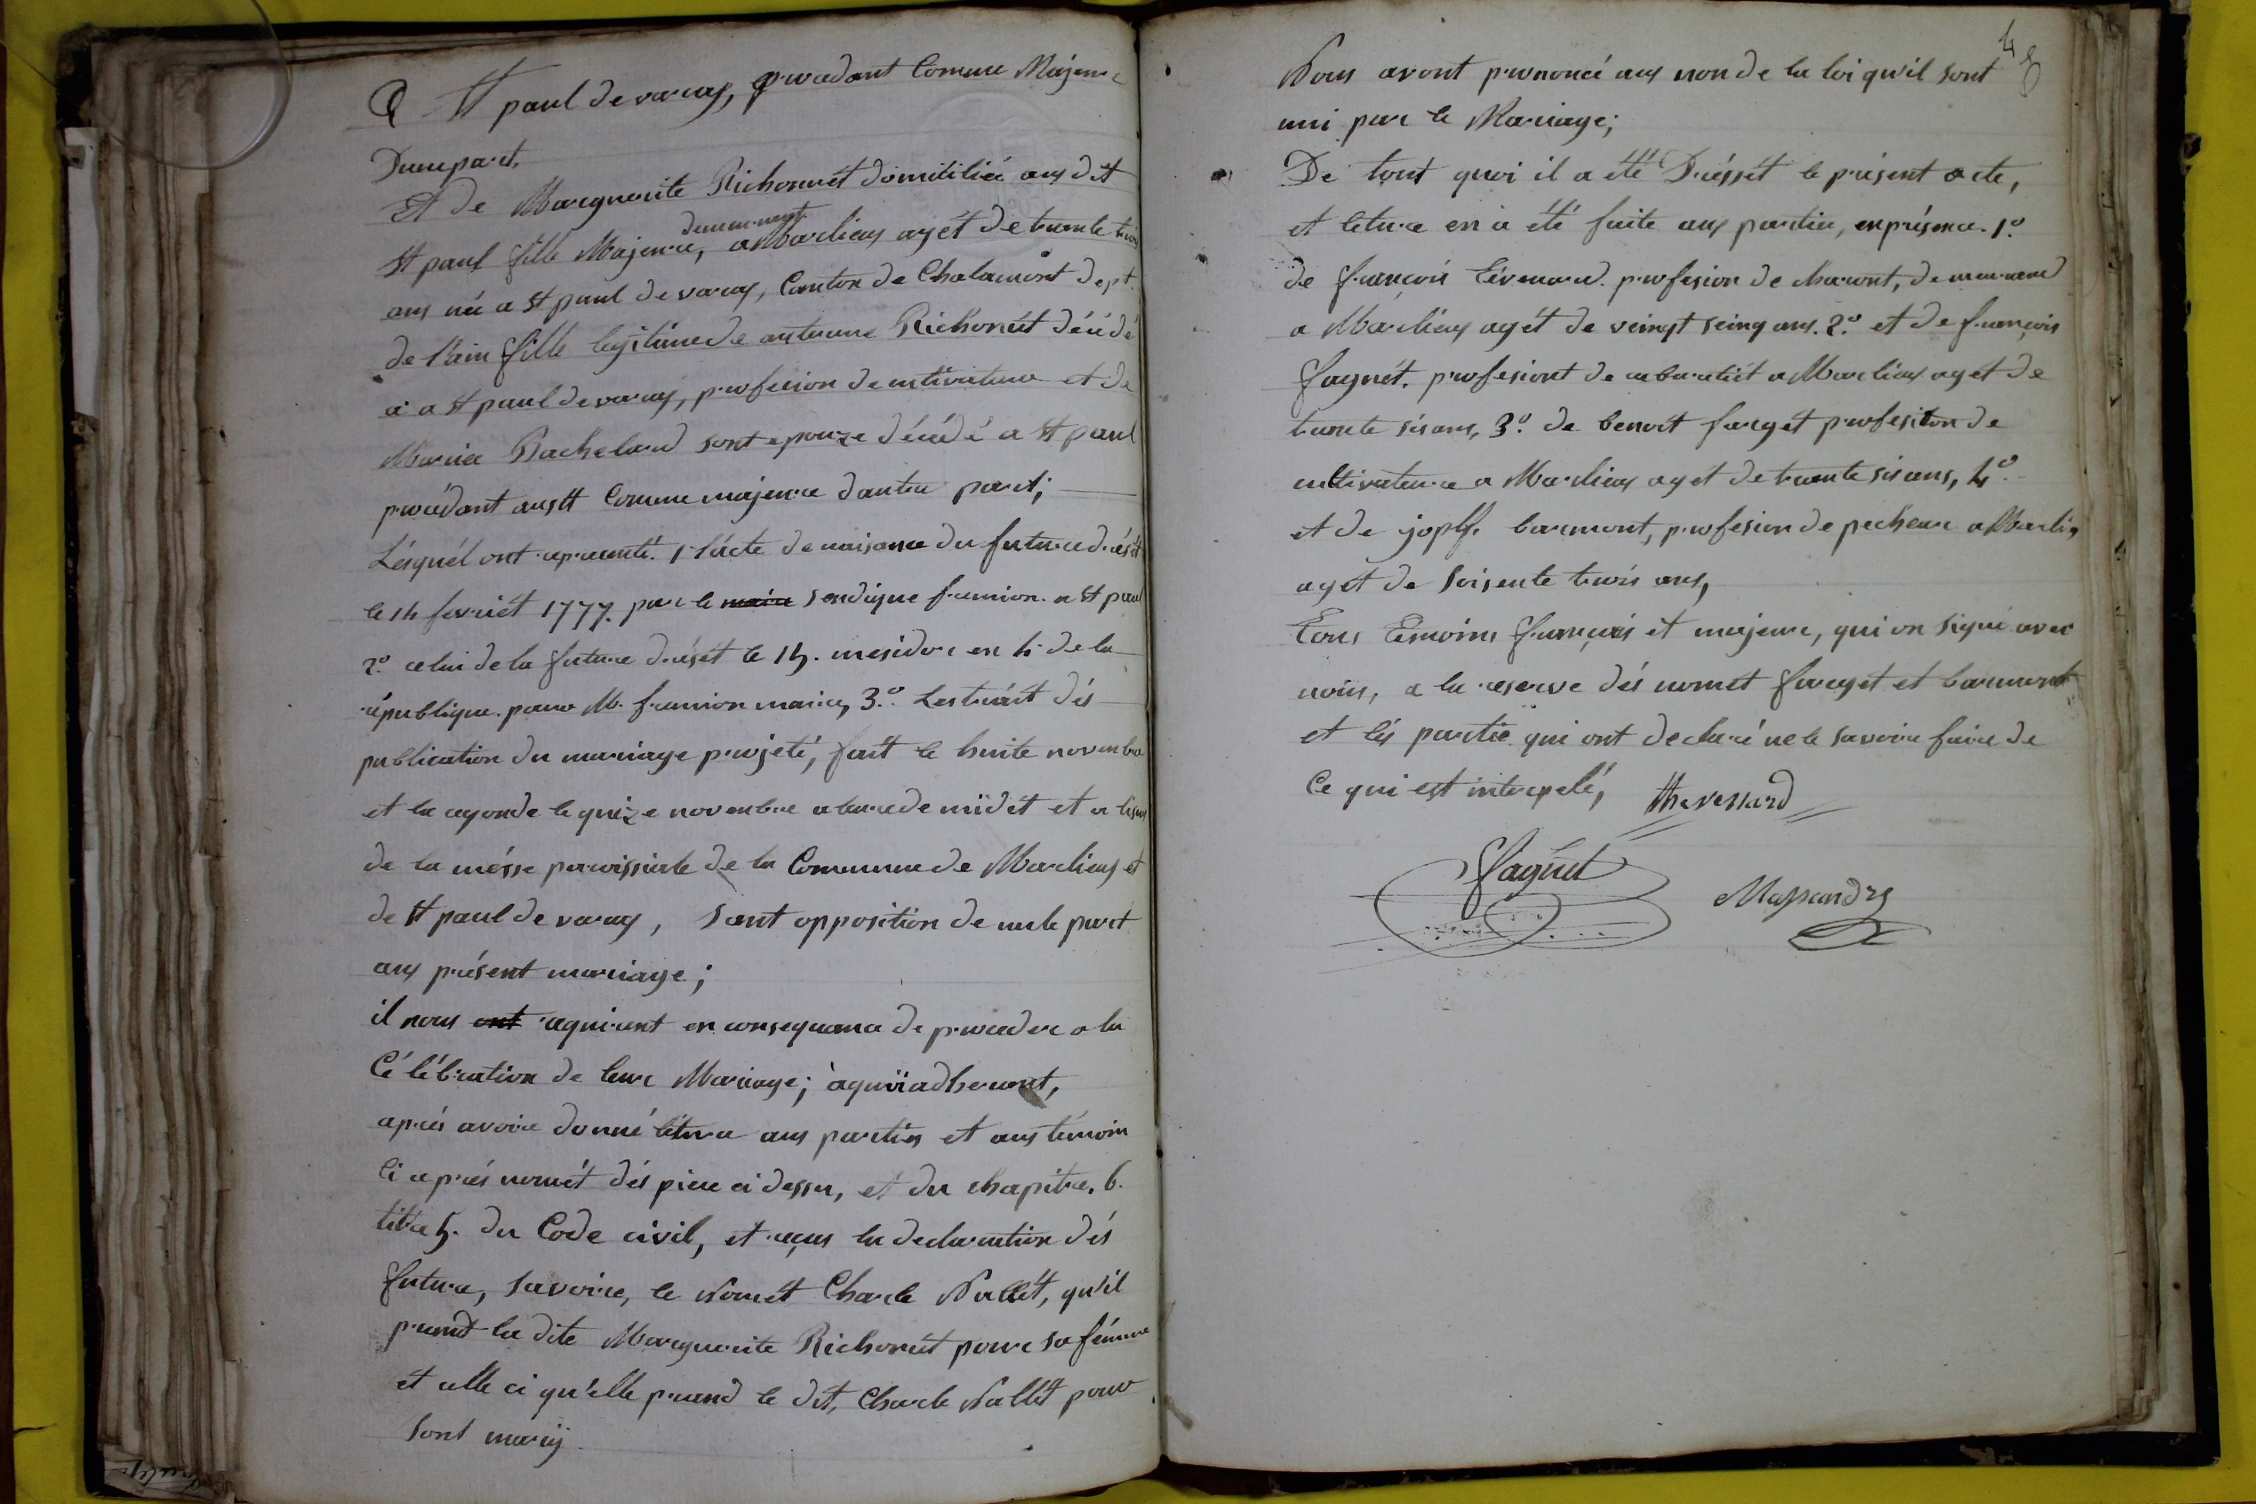 a St paul de varax, procedant Comme Majeure
Dunepart,
Et de Marguerite Richonnét domiciliée aux dit
demeurant
St paul fille Majeure, a Marlieux agét de trante trois
ans née a St paul de varax, Canton de Chalamont dept.
de l'ain fille legitime de antoinne Richonét décédé
a a St paul de varax, profession de cultivateur et de
Marie Bachelard sont epouze décédé a St paul
procédant austt Comme majeure dautre part;
Lésquél ont represanté. 1 lácte de naisance du future drését
le 14 fevriét 1777. par le maire sendique framion a St paul
2.º celui de la future drését le 15. mesidor en 4 de la
république. pour M. framion maire, 3.º Lestrait dés
publication du mariage projeté, fait le huite novembre
et la cegonde le quize novembre a leure de midét et a lisue
de la mésse paroissiale de la Commune de Marlieux et
de St paul de varax, sant opposition de nule part
aux présent mariage;
il nous ont requirent en consequance de proceder a la
Célébration de leur Mariage; à quoi adherent,
aprés avoir donné léture aux parties et aux témoin
ci aprés nomét dés piece ci dessu, et du chapitre. 6.
titre 5. du Code civil, et reçus la declaration dés
future, savoire, le Nomét Charle Nallét, qu'il
prend la dite Marguerite Richonét pour sa fémme
et celle ci qu'elle prand le dit, Charle Nallét pour
sont mary
48
Nous avont prononcé aux non de la loi qu'il sont
uni par le Mariage;
De tout quoi il a été Dréssét le présent acte,
et leture en a été faite aux partie, enprésence. 1.º
de françois Tévenard. profesion de charont, demeurand
a Marlieux agét de veingt seinq ans. 2.º et de françois
fagnét. profesiont de cabaretiét a Marlieux agét de
trante sis ans, 3.º de benoit fargét profesiton de
cultivateure a Marlieux agét de trante sis ans, 4.º
et de joph. barmont, profesion de pecheur a Marlieux
agét de soisente trois ans,
Tous Temoins français et majeure, qui on signé avec
nous, a la reserve dés nomét farget et barmont
et lés partie qui ont declaré ne le savoire faire de
Ce qui est interpelé, Thevenard
Faguet